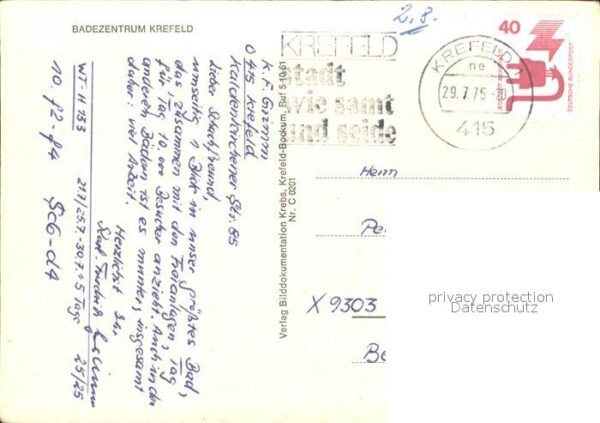 BADEZENTRUM KREFELD
2.8.
KREFELD
Stadt
wie samt
und seide
KREFELD 1
ne
29.7.75-20
415
40
DEUTSCHE BUNDESPOST
K. F. Grimm
Kaldenkirchener Str. 85
D 415 Krefeld
Lieber Schachfreund,
umseitig 1 Blick in unser größtes Bad,
das zusammen mit den Freianlagen, Tag
für Tag 10.000 Besucher anzieht. Auch in den
anderen Bädern ist es munter, insgesamt
daher: viel Arbeit.
Herzlichst Ihr
WT-H 353
217/25.7.-30.7. = 5 Tage 25/25
10. f2-f4 Sc6-d4
Verlag Bilddokumentation Krebs, Krefeld-Bockum, Ruf 5 10 61
Nr. C 0201
Herrn
Pe
X 9303
Be
privacy protection
Datenschutz